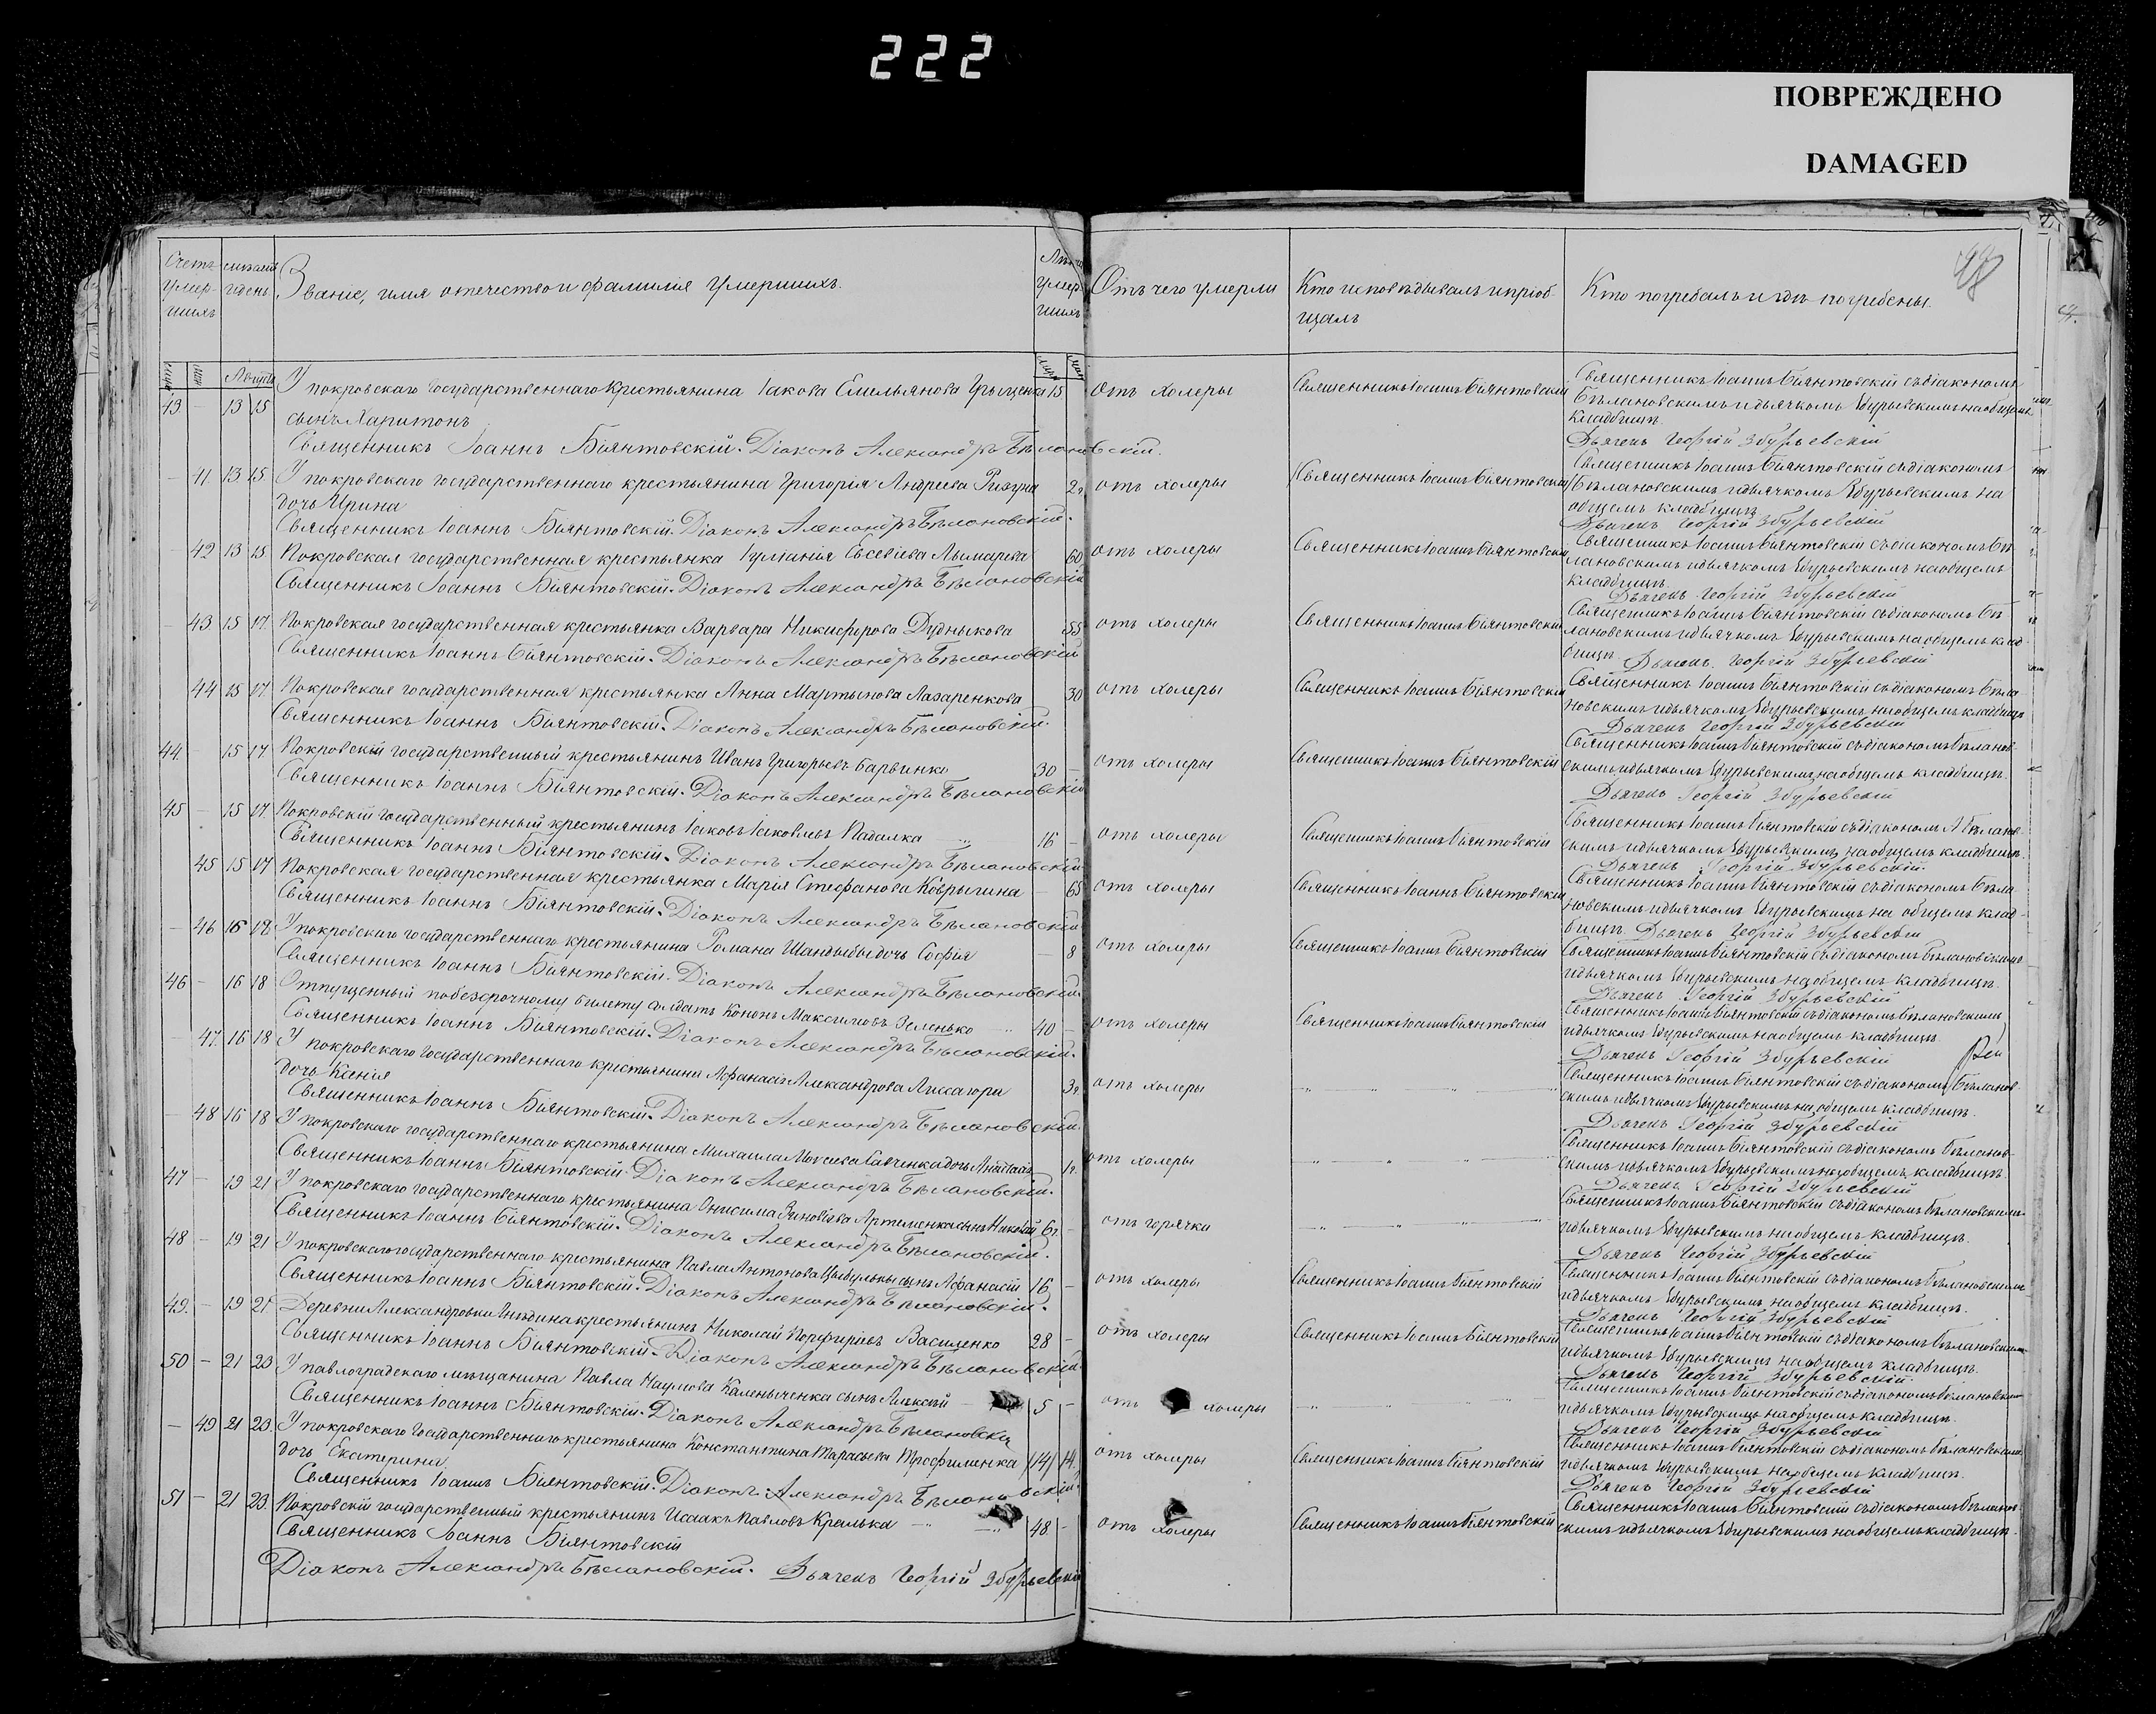 222
ПОВРЕЖДЕНО
DAMAGED
48
Счетъ умер- шихъ
Мѣсяцъ и день
Званіе, имя отечество и фамилія умершихъ.
Лѣта умер- шихъ
Отъ чего умерли
Кто исповѣдывалъ и пріоб-
щалъ
Кто погребалъ и гдѣ погребены.
Августъ
43 - 13 15 У покровскаго государственнаго крестьянина Іакова Емельянова Грыценка 15 отъ холеры Священникъ Іоаннъ Біянтовскій Священникъ Іоаннъ Біянтовскій съ діакономъ
сынъ Харитонъ Бѣлановскимъ и дьячкомъ Збурьевскимъ на общемъ
кладбищѣ.
Священникъ Іоаннъ Біянтовскій. Діаконъ Александръ Бѣлановскій. Дьячекъ Георгій Збурьевскій
- 41 13 15 У покровскаго государственнаго крестьянина Григорія Андреева 2г. отъ холеры Священникъ Іоаннъ Біянтовскій Священникъ Іоаннъ Біянтовскій съ діакономъ
дочь Ирина Бѣлановскимъ и дьячкомъ Збурьевскимъ на
общемъ кладбищѣ
Священникъ Іоаннъ Біянтовскій. Діаконъ Александръ Бѣлановскій. Дьячекъ Георгій Збурьевскій
- 42 13 15 Покровская государственная крестьянка Евсевіева Лымарева 60 отъ холеры Священникъ Іоаннъ Біянтовскій Священникъ Іоаннъ Біянтовскій съ діакономъ Бѣ-
лановскимъ и дьячкомъ Збурьевскимъ на общемъ
кладбищѣ.
Священникъ Іоаннъ Біянтовскій. Діаконъ Александръ Бѣлановскій Дьячекъ Георгій Збурьевскій
- 43 15 17 Покровская государственная крестьянка Варвара Никифорова Дудныкова 55 отъ холеры Священникъ Іоаннъ Біянтовскій Священникъ Іоаннъ Біянтовскій съ діакономъ Бѣ-
лановскимъ и дьячкомъ Збурьевскимъ на общемъ клад-
Священникъ Іоаннъ Біянтовскій. Діаконъ Александръ Бѣлановскій бищѣ Дьячекъ Георгій Збурьевскій
44 15 17 Покровская государственная крестьянка Анна Мартынова Лазаренкова 30 отъ холеры Священникъ Іоаннъ Біянтовскій Священникъ Іоаннъ Біянтовскій съ діакономъ Бѣла-
новскимъ и дьячкомъ Збурьевскимъ на общемъ кладбищѣ
Священникъ Іоаннъ Біянтовскій. Діаконъ Александръ Бѣлановскій. Дьячекъ Георгій Збурьевскій
44 - 15 17 Покровскій государственный крестьянинъ Иванъ Григорьевъ Барвинко 30 - отъ холеры Священникъ Іоаннъ Біянтовскій Священникъ Іоаннъ Біянтовскій съ діакономъ Бѣланов-
скимъ и дьячкомъ Збурьевскимъ на общемъ кладбищѣ.
Священникъ Іоаннъ Біянтовскій. Діаконъ Александръ Бѣлановскій Дьячекъ Георгій Збурьевскій
45 - 15 17 Покровскій государственный крестьянинъ Іаковъ Іаковлевъ Падалка 16 - отъ холеры Священникъ Іоаннъ Біянтовскій Священникъ Іоаннъ Біянтовскій съ діакономъ Бѣланов-
скимъ и дьячкомъ Збурьевскимъ на общемъ кладбищѣ.
Священникъ Іоаннъ Біянтовскій. Діаконъ Александръ Бѣлановскій Дьячекъ Георгій Збурьевскій.
45 15 17 Покровская государственная крестьянка Марія Стефанова Коврыгина - 65 отъ холеры Священникъ Іоаннъ Біянтовскій Священникъ Іоаннъ Біянтовскій съ діакономъ Бѣла-
новскимъ и дьячкомъ Збурьевскимъ на общемъ клад-
Священникъ Іоаннъ Біянтовскій. Діаконъ Александръ Бѣлановскій бищѣ. Дьячекъ Георгій Збурьевскій
- 46 16 18 У покровскаго государственнаго крестьянина Романа Шандыбы дочь Софія - 8 отъ холеры Священникъ Іоаннъ Біянтовскій Священникъ Іоаннъ Біянтовскій съ діакономъ Бѣлановскимъ
и дьячкомъ Збурьевскимъ на общемъ кладбищѣ.
Священникъ Іоаннъ Біянтовскій. Діаконъ Александръ Бѣлановскій. Дьячекъ Георгій Збурьевскій
46 - 16 18 Отпущенный по безсрочному билету солдатъ Кононъ Максимовъ Зеленько 40 - отъ холеры Священникъ Іоаннъ Біянтовскій Священникъ Іоаннъ Біянтовскій съ діакономъ Бѣлановскимъ
и дьячкомъ Збурьевскимъ на общемъ кладбищѣ.
Священникъ Іоаннъ Біянтовскій. Діаконъ Александръ Бѣлановскій. Дьячекъ Георгій Збурьевскій
- 47 16 18 У покровскаго государственнаго крестьянина Афанасія Александрова Лиссагори 3г. отъ холеры Священникъ Іоаннъ Біянтовскій съ діакономъ Бѣланов-
дочь Ксенія скимъ и дьячкомъ Збурьевскимъ на общемъ кладбищѣ.
Священникъ Іоаннъ Біянтовскій. Діаконъ Александръ Бѣлановскій. Дьячекъ Георгій Збурьевскій
- 48 16 18 У покровскаго государственнаго крестьянина Михаила Моисеева Савченка дочь Анастасія 1г. отъ холеры Священникъ Іоаннъ Біянтовскій съ діакономъ Бѣланов-
скимъ и дьячкомъ Збурьевскимъ на общемъ кладбищѣ.
Священникъ Іоаннъ Біянтовскій. Діаконъ Александръ Бѣлановскій. Дьячекъ Георгій Збурьевскій
47 - 19 21 У покровскаго государственнаго крестьянина Онисима Зиновіева Артеменка сынъ Николай 6г. - отъ горячки Священникъ Іоаннъ Біянтовскій съ діакономъ Бѣлановскимъ
и дьячкомъ Збурьевскимъ на общемъ кладбищѣ.
Священникъ Іоаннъ Біянтовскій. Діаконъ Александръ Бѣлановскій. Дьячекъ Георгій Збурьевскій
48 - 19 21 У покровскаго государственнаго крестьянина Павла Антонова Цыбульки сынъ Афанасій 16 - отъ холеры Священникъ Іоаннъ Біянтовскій Священникъ Іоаннъ Біянтовскій съ діакономъ Бѣлановскимъ
и дьячкомъ Збурьевскимъ на общемъ кладбищѣ.
Священникъ Іоаннъ Біянтовскій. Діаконъ Александръ Бѣлановскій. Дьячекъ Георгій Збурьевскій
49. - 19 21 Деревни Александровки крестьянинъ Николай Порфиріевъ Василенко 28 - отъ холеры Священникъ Іоаннъ Біянтовскій Священникъ Іоаннъ Біянтовскій съ діакономъ Бѣлановскимъ
и дьячкомъ Збурьевскимъ на общемъ кладбищѣ.
Священникъ Іоаннъ Біянтовскій. Діаконъ Александръ Бѣлановскій Дьячекъ Георгій Збурьевскій.
50 - 21 23 У павлоградскаго мѣщанина Павла Наумова Каленыченка сынъ Алексѣй 5 - отъ холеры Священникъ Іоаннъ Біянтовскій съ діакономъ Бѣлановскимъ
и дьячкомъ Збурьевскимъ на общемъ кладбищѣ.
Священникъ Іоаннъ Біянтовскій. Діаконъ Александръ Бѣлановскій Дьячекъ Георгій Збурьевскій
- 49 21 23. У покровскаго государственнаго крестьянина Константина Тарасьева Трофименка (14) 14. отъ холеры Священникъ Іоаннъ Біянтовскій Священникъ Іоаннъ Біянтовскій съ діакономъ Бѣлановскимъ
дочь Екатерина и дьячкомъ Збурьевскимъ на общемъ кладбищѣ.
Священникъ Іоаннъ Біянтовскій. Діаконъ Александръ Бѣлановскій. Дьячекъ Георгій Збурьевскій
51 - 21 23 Покровскій государственный крестьянинъ Исаакъ Павловъ Кралька 48 - отъ холеры Священникъ Іоаннъ Біянтовскій Священникъ Іоаннъ Біянтовскій съ діакономъ Бѣланов-
скимъ и дьячкомъ Збурьевскимъ на общемъ кладбищѣ.
Священникъ Іоаннъ Біянтовскій
Діаконъ Александръ Бѣлановскій. Дьячекъ Георгій Збурьевскій